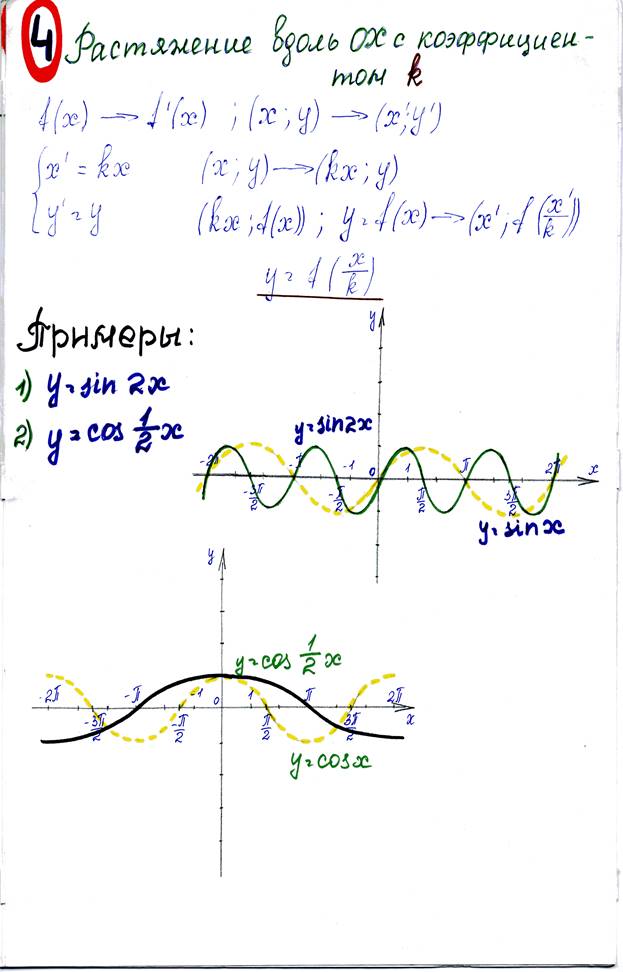 4 Растяжение вдоль OX с коэффициен-
том k
f(x) → f'(x) ; (x ; y) → (x' ; y')
{ x' = kx (x ; y) → (kx ; y)
{ y' = y (kx ; f(x)) ; y = f(x) → (x' ; f(x'/k))
y = f(x/k)
Примеры:
1) y = sin 2x
2) y = cos 1/2 x
y
y = sin2x
-2π -π -1 0 1 π 2π x
-3π/2 -π/2 π/2 3π/2
y = sin x
y
y = cos 1/2 x
-2π -π -1 0 1 π 2π x
-3π/2 -π/2 π/2 3π/2
y = cosx